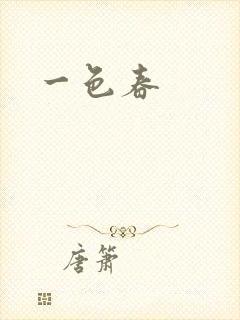 一色春
唐箫